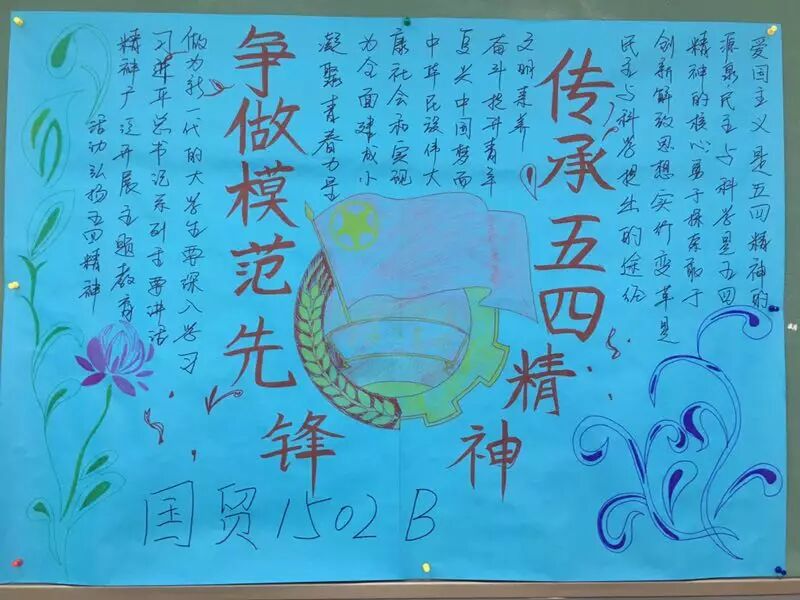 传承五四精神
争做模范先锋
爱国主义是五四精神的
源泉民主与科学是五四
精神的核心勇于探索敢于
创新解放思想实行变革是
民主与科学提出的途径
文明素养
奋斗提升青年
复兴中国梦而
中华民族伟大
康社会和实现
为全面建成小
凝聚青春力量
做为新一代的大学生要深入学习
习近平总书记系列重要讲话
精神广泛开展主题教育
活动弘扬五四精神
国贸1502B